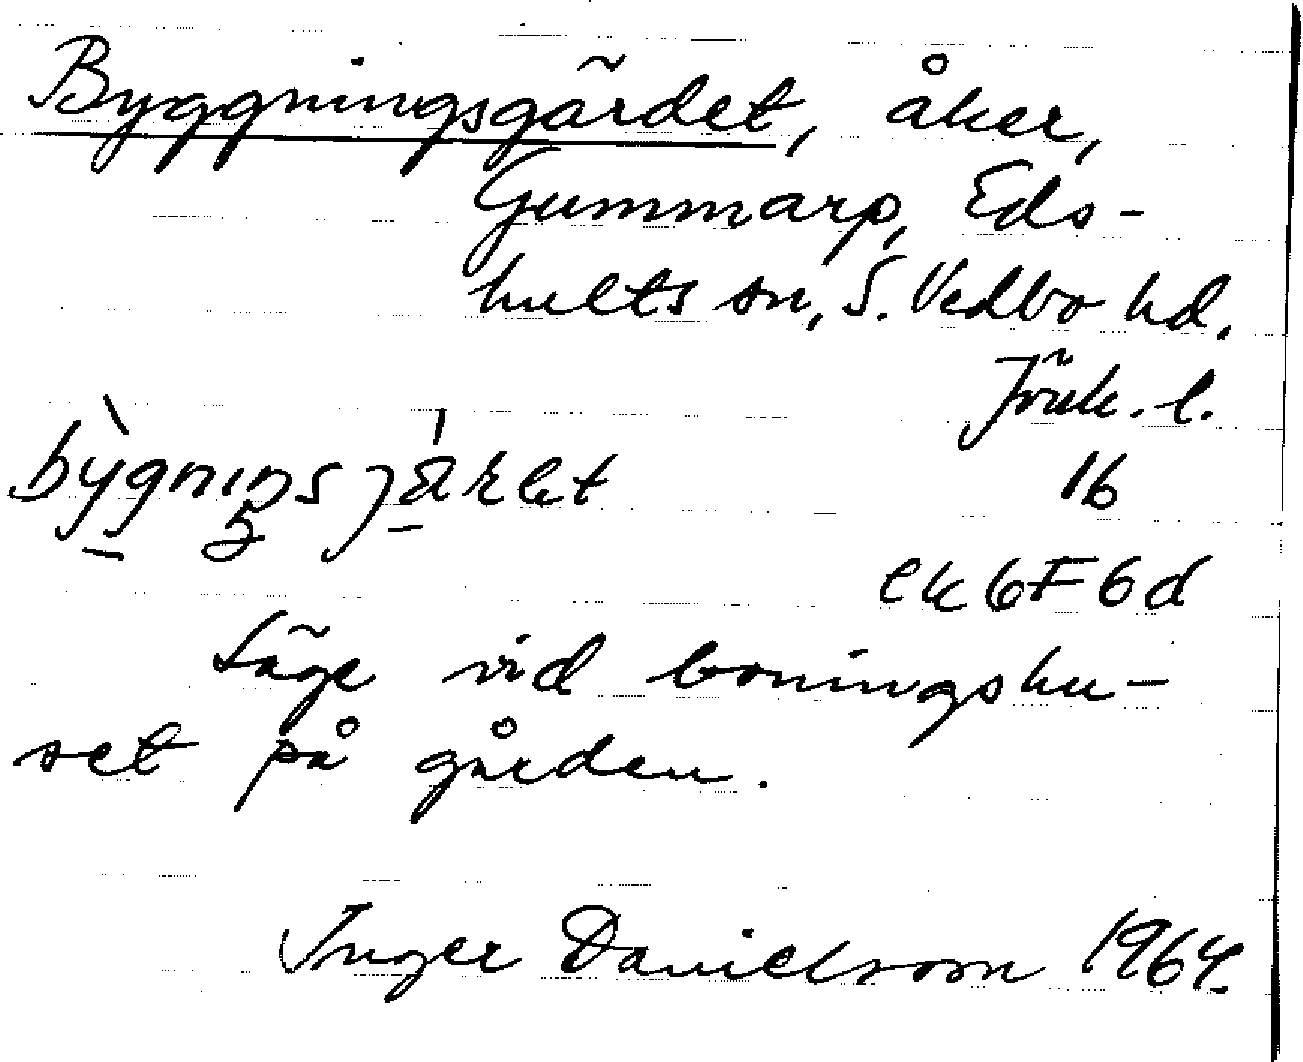 Byggningsgärdet, åker,
Gummarp, Eds-
hults sn, S. Vedbo hd.
Jönk. l.
16
ek 6F6d
Läge vid boningshu-
set på gården.
Inger Danielsson 1964.